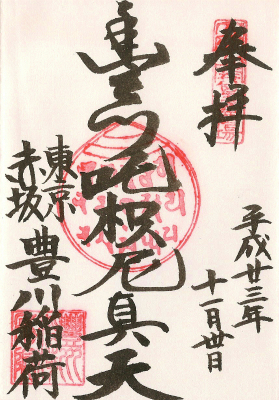 奉拝
平成廿三年
十一月卅日
豊川吒枳尼真天
東京
赤坂
豊川稲荷